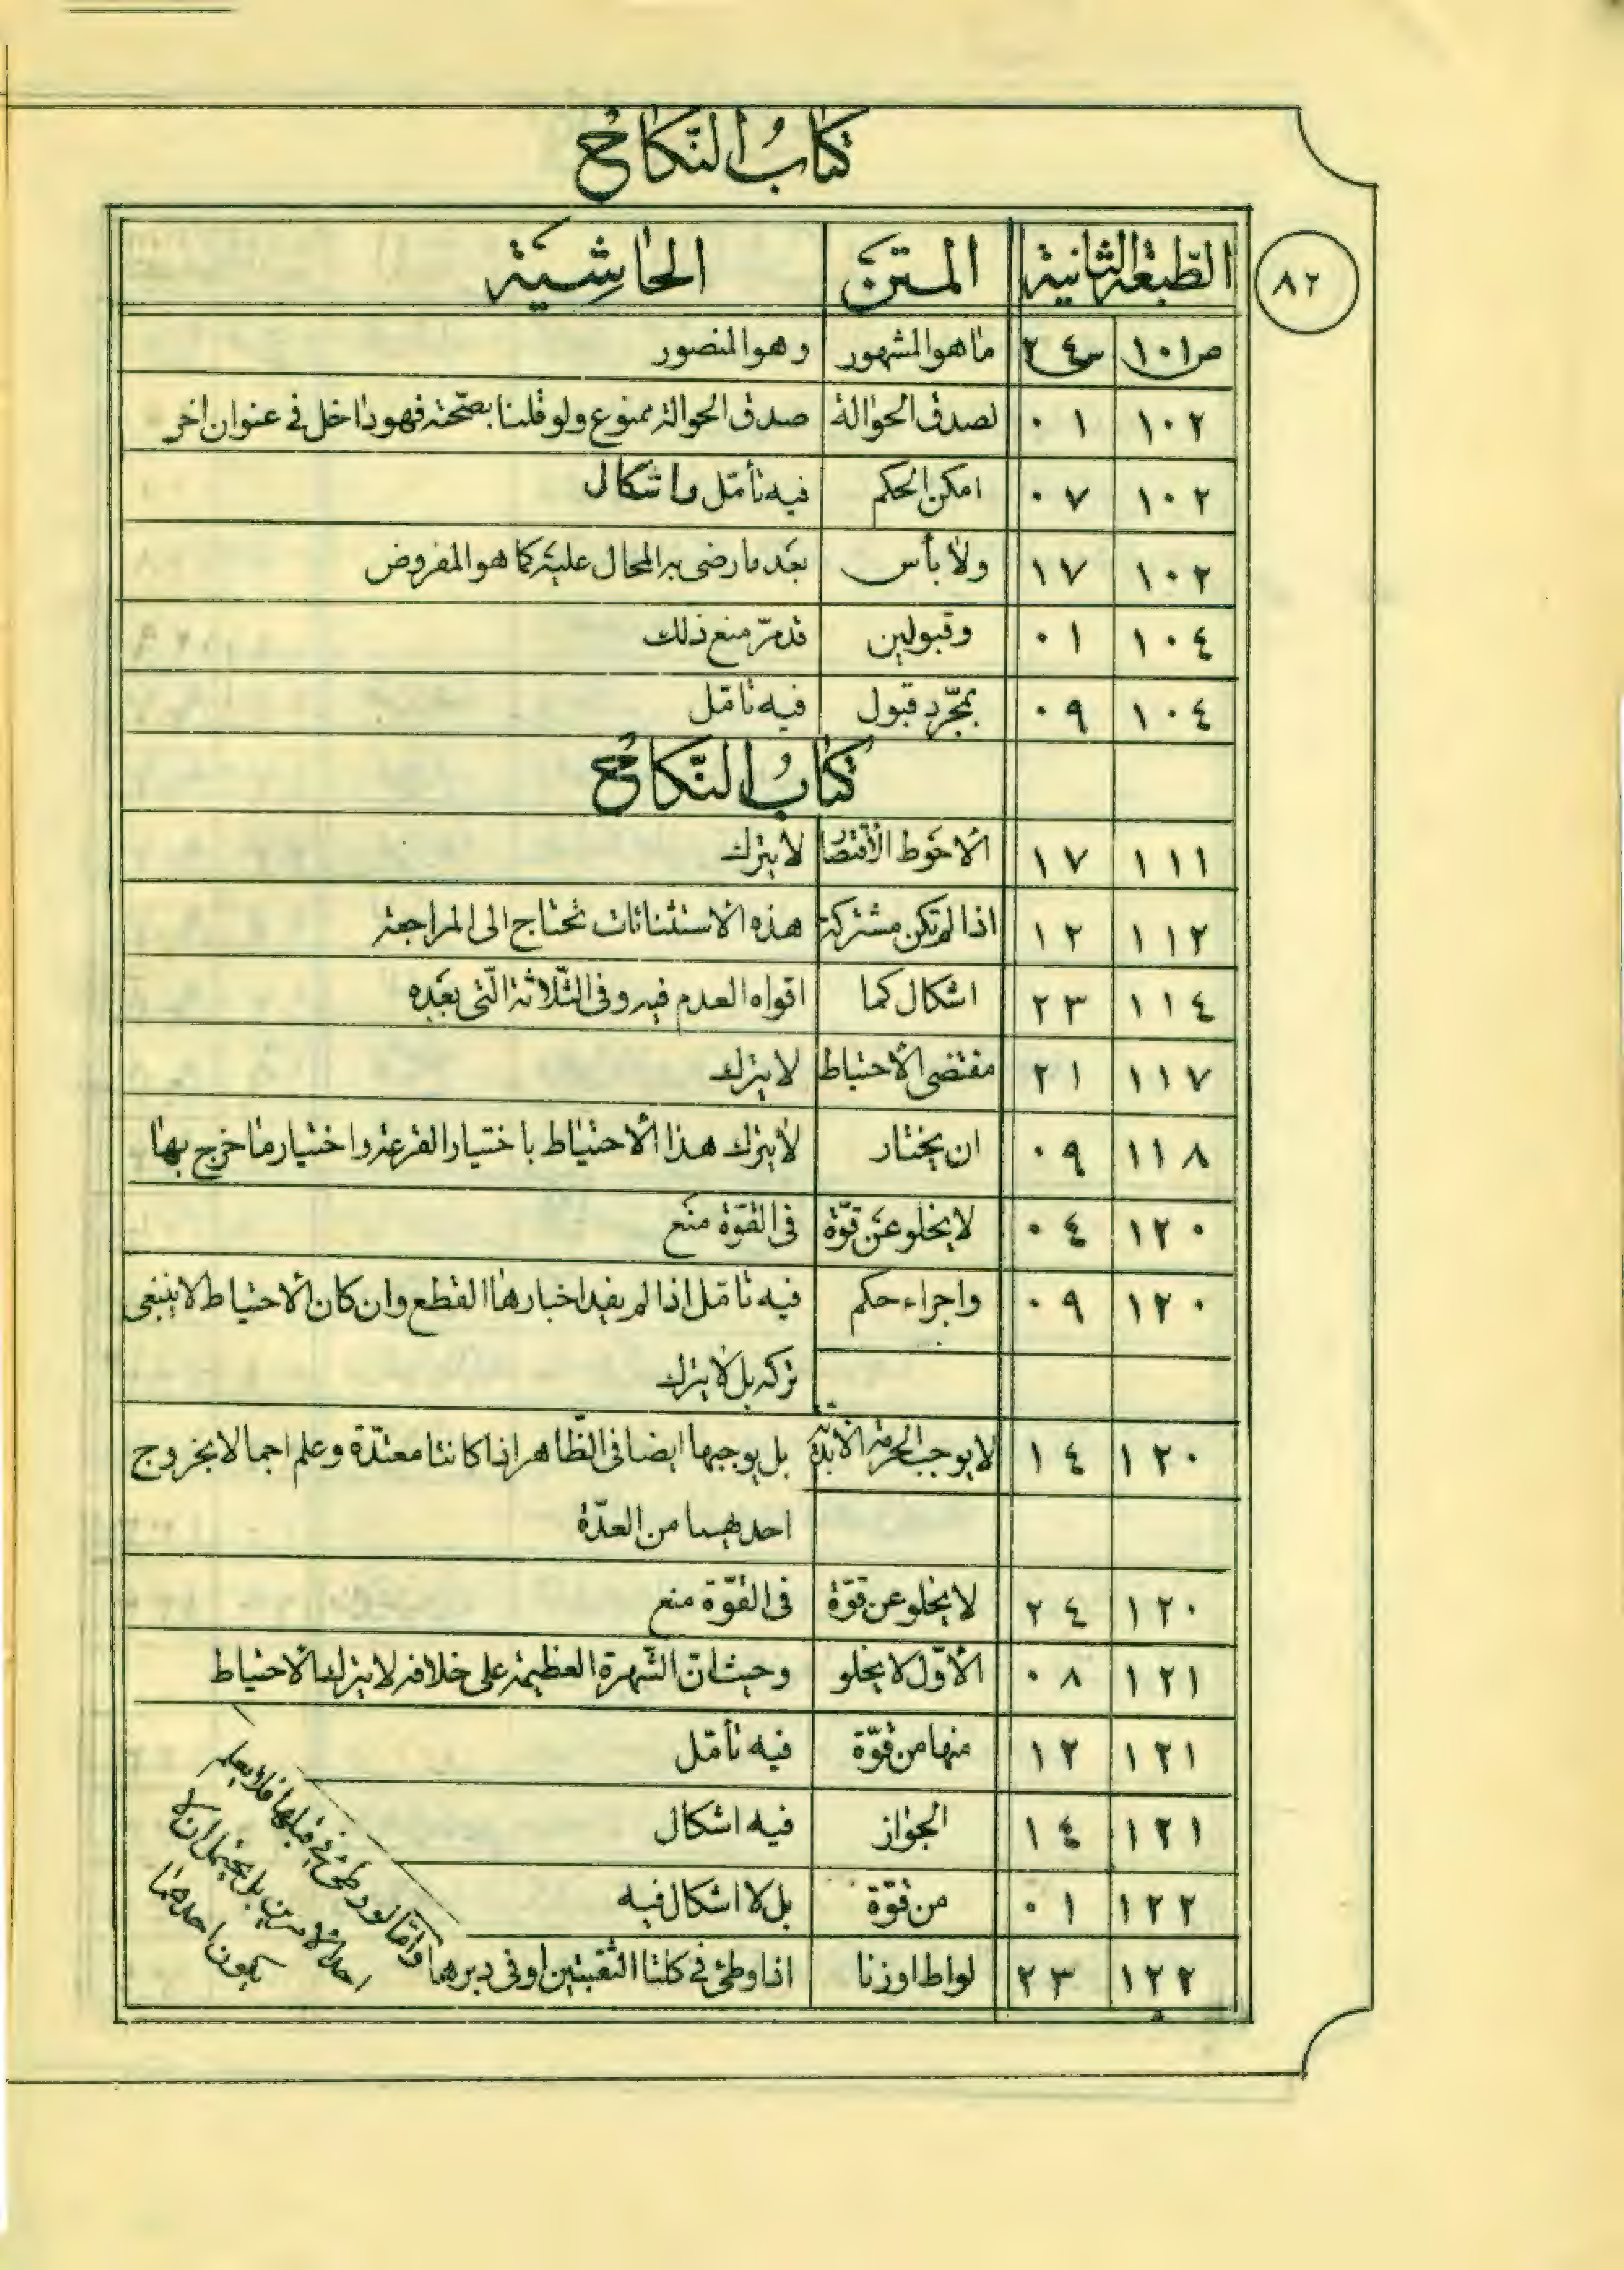 كتاب النكاح
٨٢
الطبعة الثانية المتن الحاشية
ص١٠١ س٢٤ ما هو المشهور وهو المنصور
١٠٢ ٠١ لصدق الحوالة صدق الحوالة ممنوع ولو قلنا بصحته فهو داخل في عنوان اخر
١٠٢ ٠٧ امكن الحكم فيه تأمّل واشكال
١٠٢ ١٧ ولا بأس بعد ما رضى به المحال عليه كما هو المفروض
١٠٤ ٠١ وقبولين قد مرّ منع ذلك
١٠٤ ٠٩ بمجّرد قبول فيه تامّل
كتاب النّكاح
١١١ ١٧ الاحوط الأقتصا لا يترك
١١٢ ١٢ اذا لم تكن مشتركة هذه الاستثنائات تحتاج الى المراجعة
١١٤ ٢٣ اشكال كما اقواه العدم فيه وفى الثّلاثة الّتى بعده
١١٧ ٢١ مقتضى الأحتياط لا يترك
١١٨ ٠٩ ان يختار لا يترك هذا الاحتياط باختيار القرعة واختيار ما خرج بها
١٢٠ ٠٤ لا يخلو عن قوّة فى القوّة منع
١٢٠ ٠٩ واجراء حكم فيه تامّل اذا لم يفيد اخبارها القطع وان كان الاحتياط لا ينبغى
تركه بل لا يترك
١٢٠ ١٤ لا يوجب الحرمة الابديّة بل يوجبها ايضا فى الظّاهر اذا كانتا معتدّة وعلم اجمالا بخروج
احديهما من العدّة
١٢٠ ٢٤ لا يخلو عن قوّة فى القوّة منع
١٢١ ٠٨ الأوّل لا يخلو وحيث انّ الشّهرة العظيمة على خلافه لا يترك الاحتياط
١٢١ ١٢ منها من قوّة فيه تأمّل
١٢١ ١٤ الجواز فيه اشكال
١٢٢ ٠١ من قوّة بل لا اشكال فيه
١٢٢ ٢٣ لواط او زنا اذا وطئ في كلتا الثقبتين او فى دبرهما
وامّا لو وطئ في قبلها فلا يعلم
احد الامرين بل يحتمل ان لا
يكون احدهما